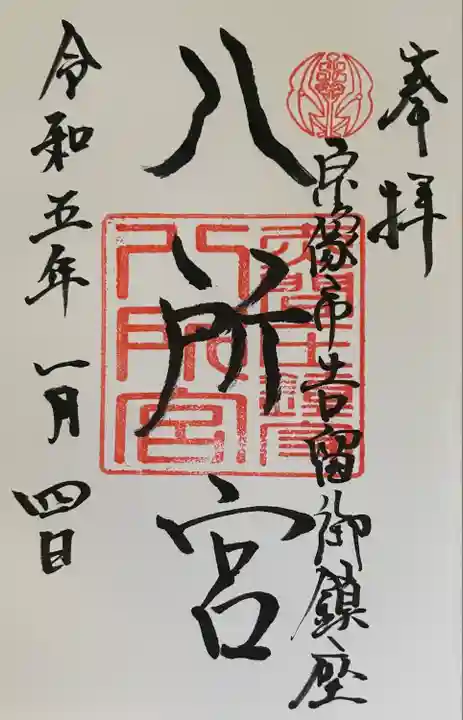 奉拝
宗像市吉留御鎮座
八所宮
八所宮
令和五年一月四日